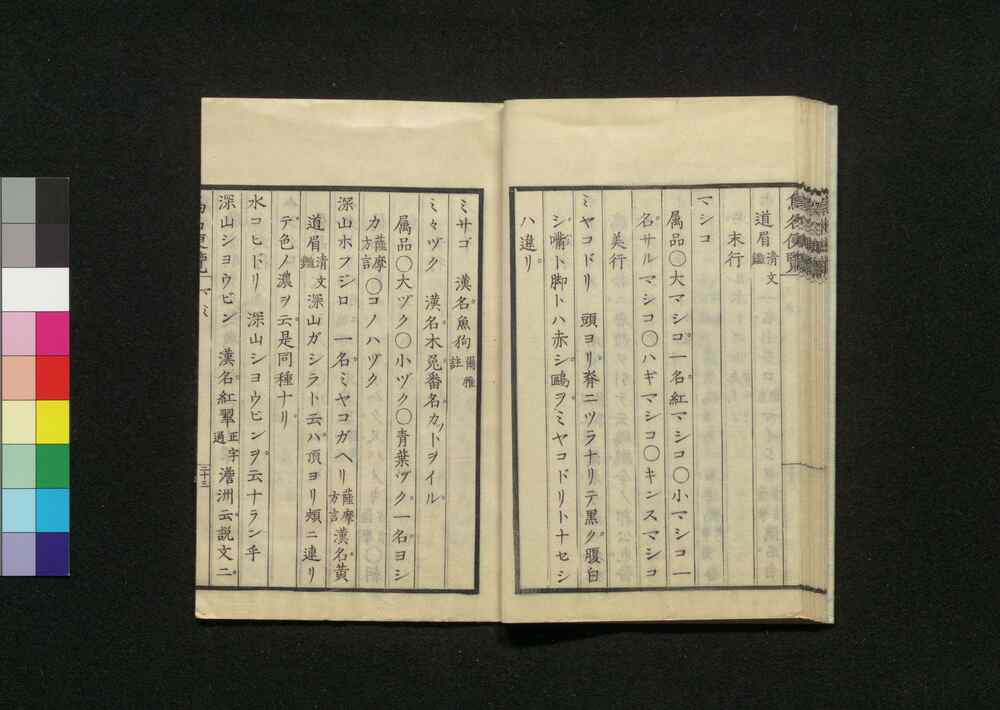 道眉清文鑑
末行
マシコ
属品〇大マシコ。一名紅マシコ〇小マシコ一
名サルマシコ〇ハギマシコ〇キンスマシコ
美行
ミヤコドリ 頭ヨリ脊ニツラナリテ黒ク。腹白
シ。嘴ト脚トハ赤シ。鷗ヲ。ミヤコドリトナセシ
ハ違リ。
ミサゴ 漢名。魚狗爾雅註
ミミヅク 漢名。木兎。番名。カノトヲイル。
属品〇大ヅク〇小ヅク〇青葉ヅク。一名。ヨシ
カ。薩摩方言〇コノハヅク
深山ホフジロ 一名。ミヤコガヘリ薩摩方言漢名。黄
道眉清文鑑深山ガシラト云ハ。頂ヨリ頬ニ連リ
テ色ノ濃ヲ云。是同種ナリ。
水コヒドリ 深山シヨウビンヲ。云ナラン乎
深山シヨウビン 漢名。紅翠正字通 澹洲云。説文ニ。
二十三